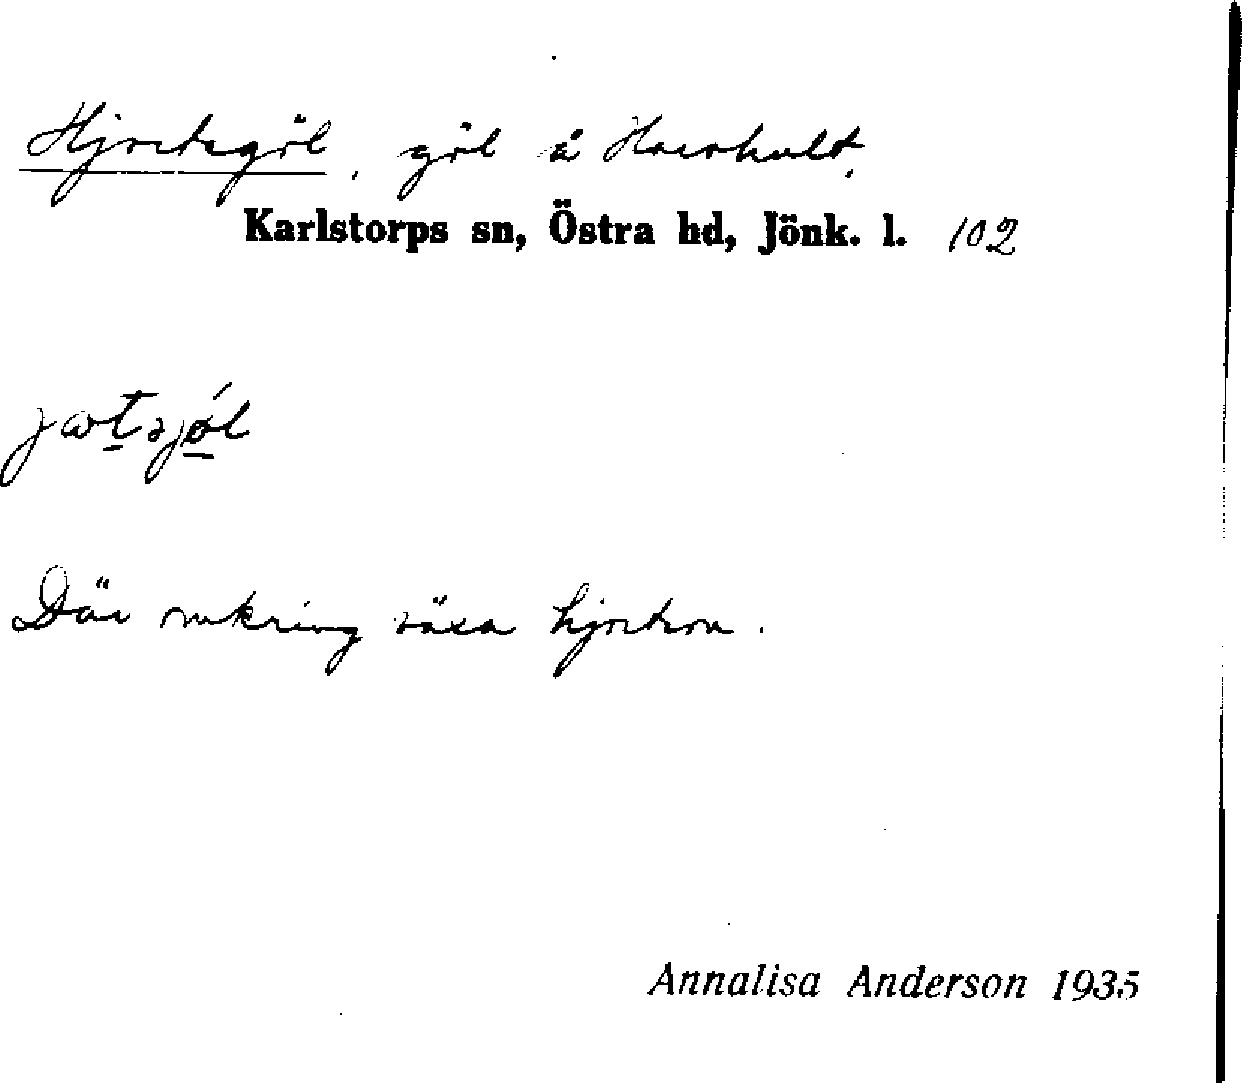 Hjortagöl, göl å Haurhult.
Karlstorps sn, Östra hd, Jönk. l. 102
Där omkring växa hjortron.
Annalisa Anderson 1935